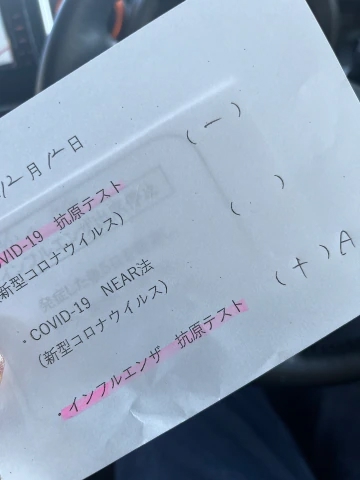 12月12日
OVID-19 抗原テスト (ー)
新型コロナウイルス)
・COVID-19 NEAR法 ( )
(新型コロナウイルス)
・インフルエンザ 抗原テスト (+) A